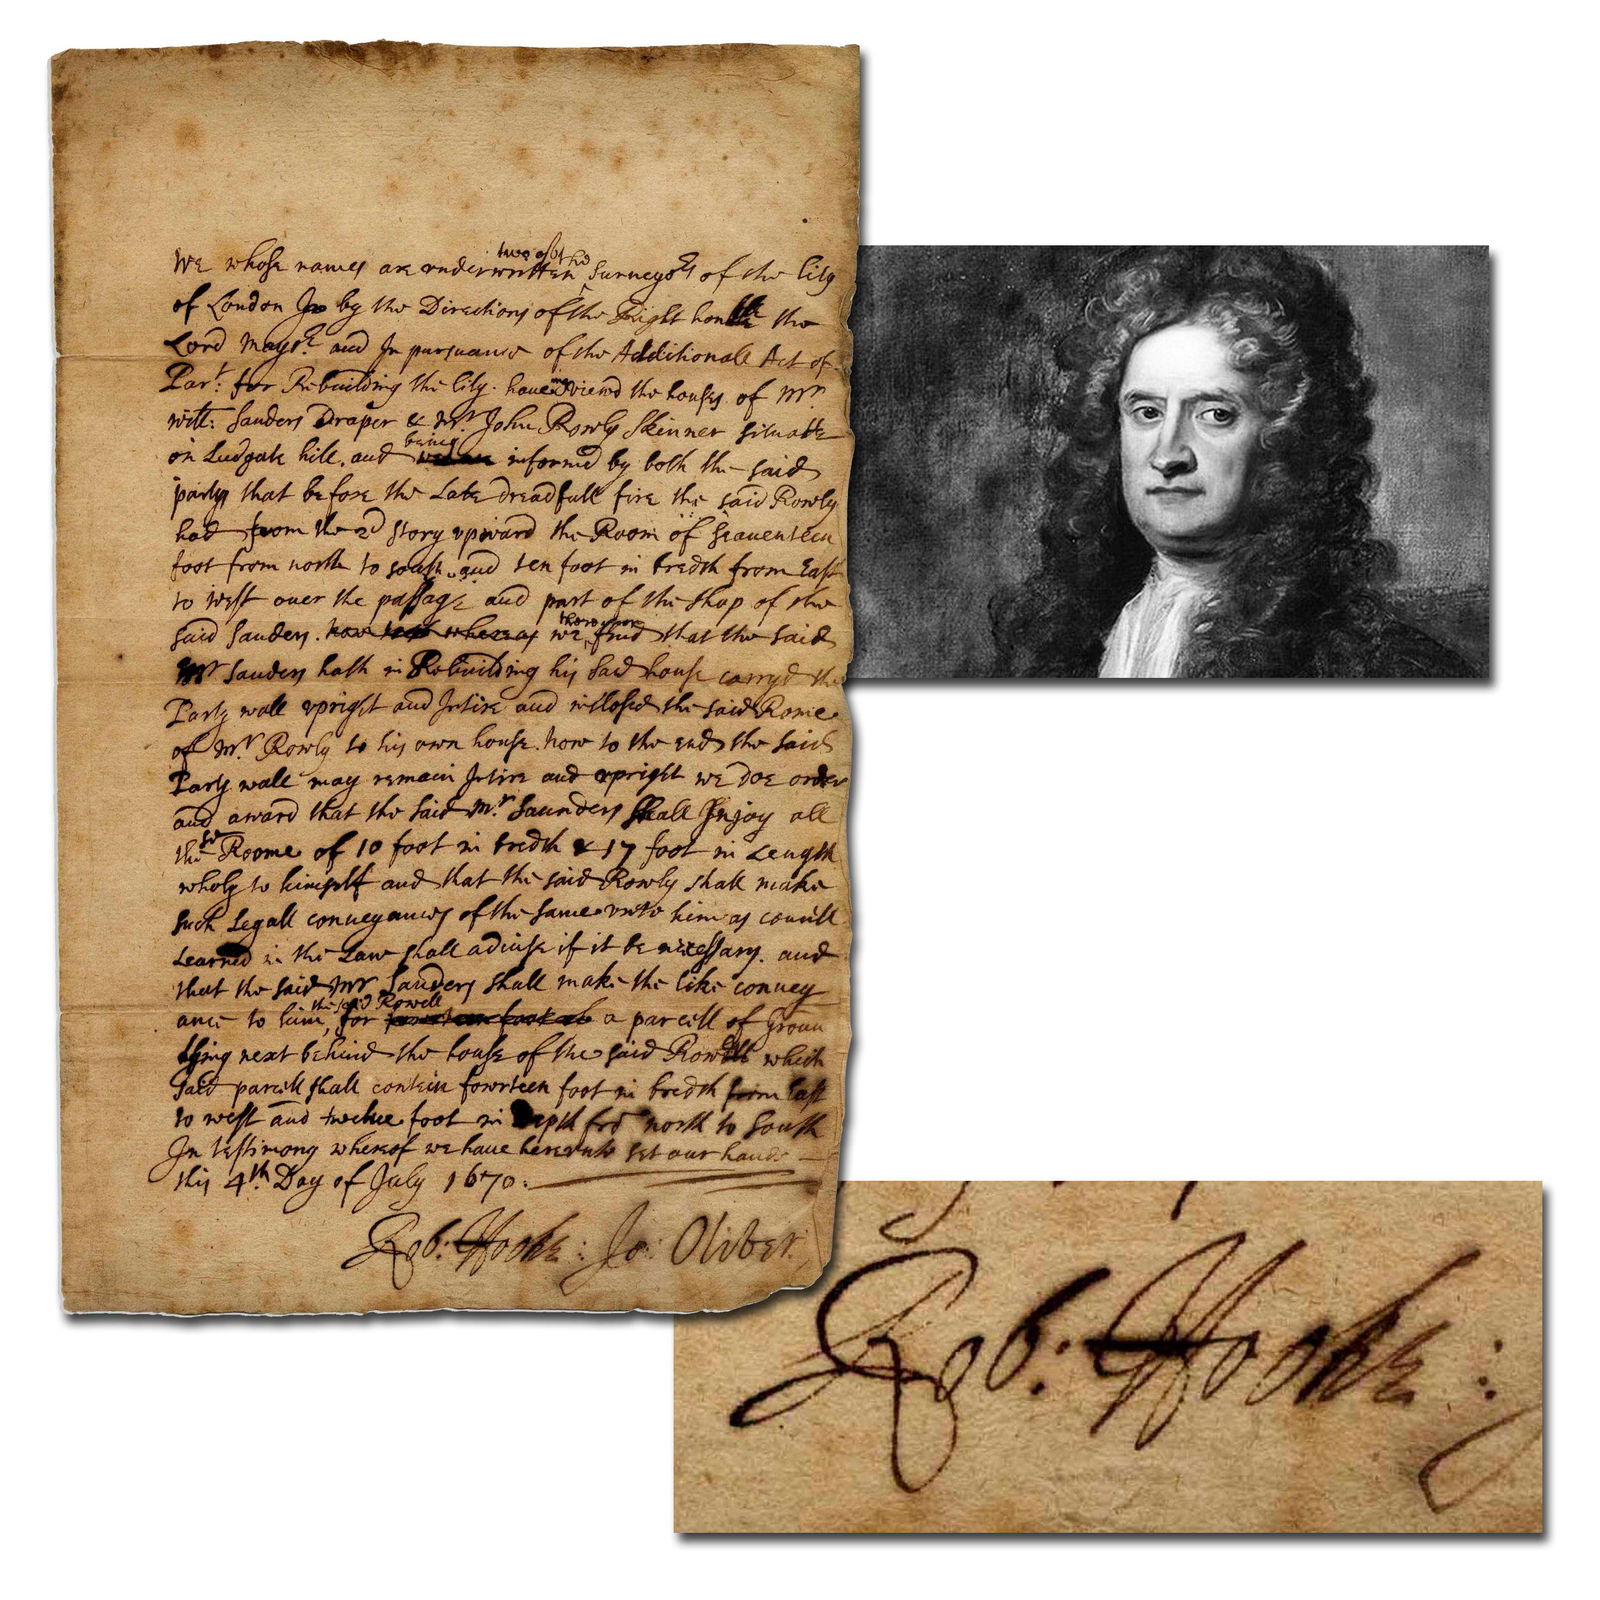 We whose names are underwritten two of the Surveyors of the City
of London Jn by the Directions of the Right honble the
Lord Mayor. and Jn pursuance of the Additionall Act of
Part: for Rebuilding the City. haveing viewd the houses of Mr
will: Sanders Draper & Mr John Rowly Skinner situate
on Ludgate hill. and being informed by both the said
partys that before the Late dreadfull fire the said Rowly
had from the 2d story upward the Room of seaventeen
foot from north to south and ten foot in bredth from East
to west over the passage and part of the shop of the
said Sanders. now whereas we find that the said
Mr Sanders hath in Rebuilding his said house carryd the
Party wall upright and Jntire and inclosed the said Rome
of Mr Rowly to his own house. now to the end the said
Party wall may remain Jntire and upright we doe order
and award that the said Mr Saunders shall Jnjoy all
the sd Roome of 10 foot in bredth & 17 foot in Length
wholy to himself and that the said Rowly shall make
such Legall conveyances of the same unto him as councill
Learned in the Law shall advise if it be necessary. and
that the said Mr Sanders shall make the like convey
ance to him, the said Rowell for a parcell of Groun
lying next behind the house of the said Rowell which
said parcell shall contein fowrteen foot in bredth from East
to west and twelve foot in depth fro north to South
Jn testimony whereof we have hereunto set our hands
this 4th Day of July 1670.
Rob: Hooke: Jo: Oliver.
Rob: Hooke: